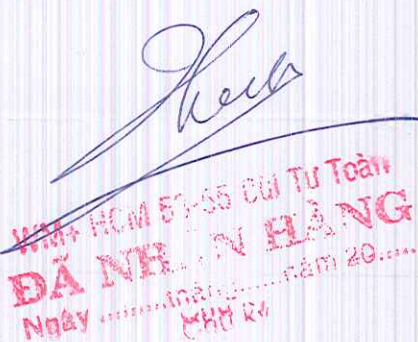 WM+ HCM 53-55 Bùi Tư Toàn
ĐÃ NH N HÀNG
Ngày ............ tháng ........ năm 20.....
Chữ ký